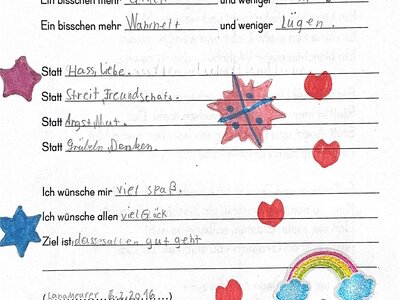 Ein bisschen mehr und weniger
Ein bisschen mehr Wahrheit und weniger Lügen.
Statt Hass, Liebe.
Statt Streit, Freundschaft.
Statt Angst, Mut.
Statt Grübeln, Denken.
Ich wünsche mir viel spaß.
Ich wünsche allen viel Glück
Ziel ist, dass allen gut geht